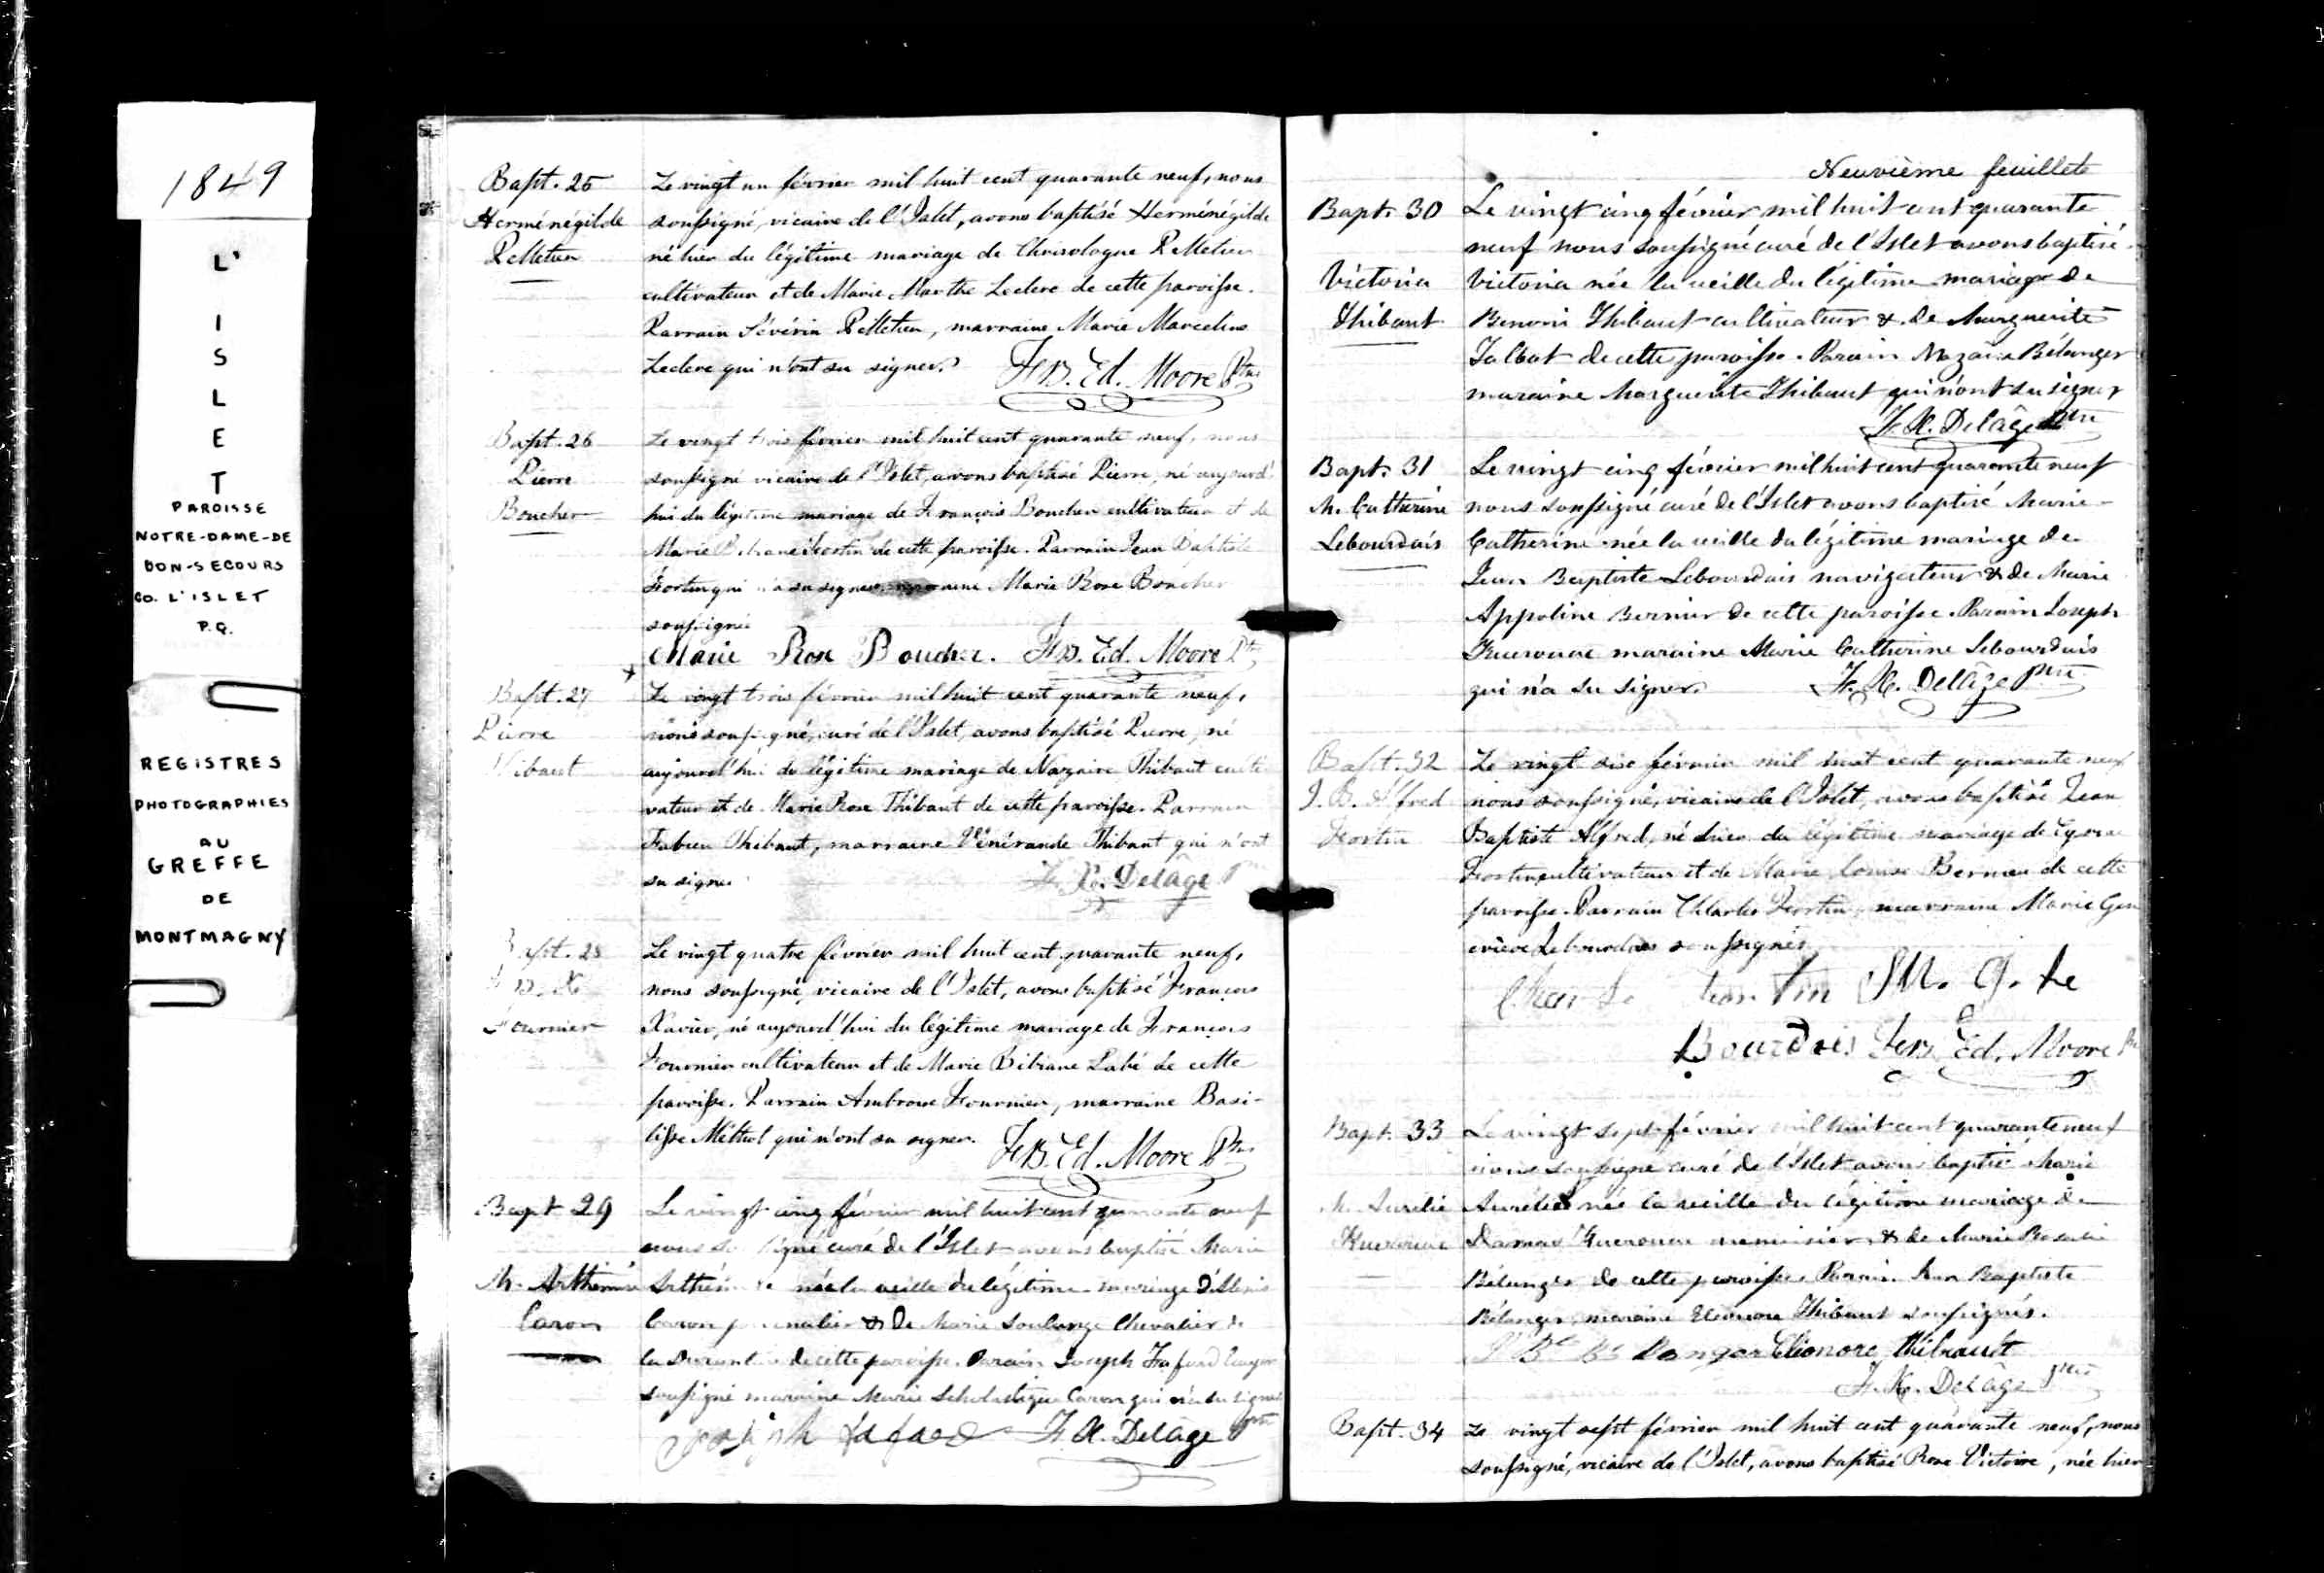 1849
L'
I
S
L
E
T
PAROISSE
NOTRE-DAME-DE
BON-SECOURS
CO. L'ISLET
P.Q.
REGISTRES
PHOTOGRAPHIES
AU
GREFFE
DE
MONTMAGNY
Bapt. 25
Herménégilde
Pelletier
Le vingt un février mil huit cent quarante neuf, nous
soussigné, vicaire de l'Islet, avons baptisé Herménégilde
né hier du légitime mariage de Chrisologue Pelletier
cultivateur et de Marie Marthe Leclerc de cette paroisse.
Parrain Sévérin Pelletier, marraine Marie Marceline
Leclerc qui n'ont su signer. Frs. Ed. Moore Ptre
Bapt. 26
Pierre
Boucher
Le vingt trois février mil huit cent quarante neuf, nous
soussigné vicaire de l'Islet, avons baptisé Pierre, né aujourd'
hui du légitime mariage de François Boucher cultivateur et de
Marie Fortin de cette paroisse. Parrain Jean Baptiste
Fortin qui n'a su signer, marraine Marie Rose Boucher
soussignée
Marie Rose Boucher. Frs. Ed. Moore Ptre
Bapt. 27
Pierre
Thibaut
Le vingt trois février mil huit cent quarante neuf,
nous soussigné, curé de l'Islet, avons baptisé Pierre, né
aujourd'hui du légitime mariage de Nazaire Thibaut culti
vateur et de Marie Rose Thibaut de cette paroisse. Parrain
Fabien Thibaut, marraine Vénérande Thibaut qui n'ont
su signer F. X. Delâge Ptre
Bapt. 28
Frs. X.
Fournier
Le vingt quatre février mil huit cent quarante neuf,
nous soussigné, vicaire de l'Islet, avons baptisé François
Xavier, né aujourd'hui du légitime mariage de François
Fournier cultivateur et de Marie Bibiane Labé de cette
paroisse. Parrain Ambroise Fournier, marraine Basi-
lisse Méthot qui n'ont su signer. Frs. Ed. Moore Ptre
Bapt 29
M. Arthémise
Caron
Le vingt cinq février mil huit cent quarante neuf
nous soussigné curé de l'Islet avons baptisé Marie
Arthémise née la veille du légitime mariage d'Alexis
Caron journalier & de Marie Soulange Chevalier de
la Durantaie de cette paroisse. Parain Joseph Lafard
soussigné maraine Marie Scholastique Caron qui n'a su signer
Joseph Lafard F. X. Delâge Ptre
Neuvième feuillete
Bapt. 30
Victoria
Thibaut
Le vingt cinq février mil huit cent quarante
neuf nous soussigné curé de l'Islet avons baptisé
Victoria née la veille du légitime mariage de
Benoni Thibaut cultivateur & de Marguerite
Talbot de cette paroisse. Parain Nazaire Bélanger
maraine Marguerite Thibaut qui n'ont su signer
F. X. Delâge Ptre
Bapt. 31
M. Catherine
Lebourdais
Le vingt cinq février mil huit cent quarante neuf
nous soussigné curé de l'Islet avons baptisé Marie
Catherine née la veille du légitime mariage de
Jean Baptiste Lebourdais navigateur & de Marie
Appoline Bernier de cette paroisse. Parain Joseph
Kuerouac maraine Marie Catherine Lebourdais
qui n'a su signer. F. X. Delâge Ptre
Bapt. 32
J. B. Alfred
Fortin
Le vingt six février mil huit cent quarante neuf
nous soussigné, vicaire de l'Islet, avons baptisé Jean
Baptiste Alfred, né hier du légitime mariage de
Fortin cultivateur et de Marie Louise Bernier de cette
paroisse. Parrain Charles Fortin, marraine Marie Gen
eviève Lebourdais soussignés
Charle Fortin M. G. Le
Bourdais Frs. Ed. Moore Ptre
Bapt. 33
M. Aurélie
Kuerouac
Le vingt sept février mil huit cent quarante neuf
nous soussigné curé de l'Islet avons baptisé Marie
Aurélie née la veille du légitime mariage de
Damase Kuerouac menuisier & de Marie Rosalie
Bélanger de cette paroisse Parain Jean Baptiste
Bélanger maraine Eléonore Thibaut soussignés.
J Bte Bélanger Eléonore Thibault
F. X. Delâge Ptre
Bapt. 34
Le vingt sept février mil huit cent quarante neuf, nous
soussigné, vicaire de l'Islet, avons baptisé Rose Victoire, née hier